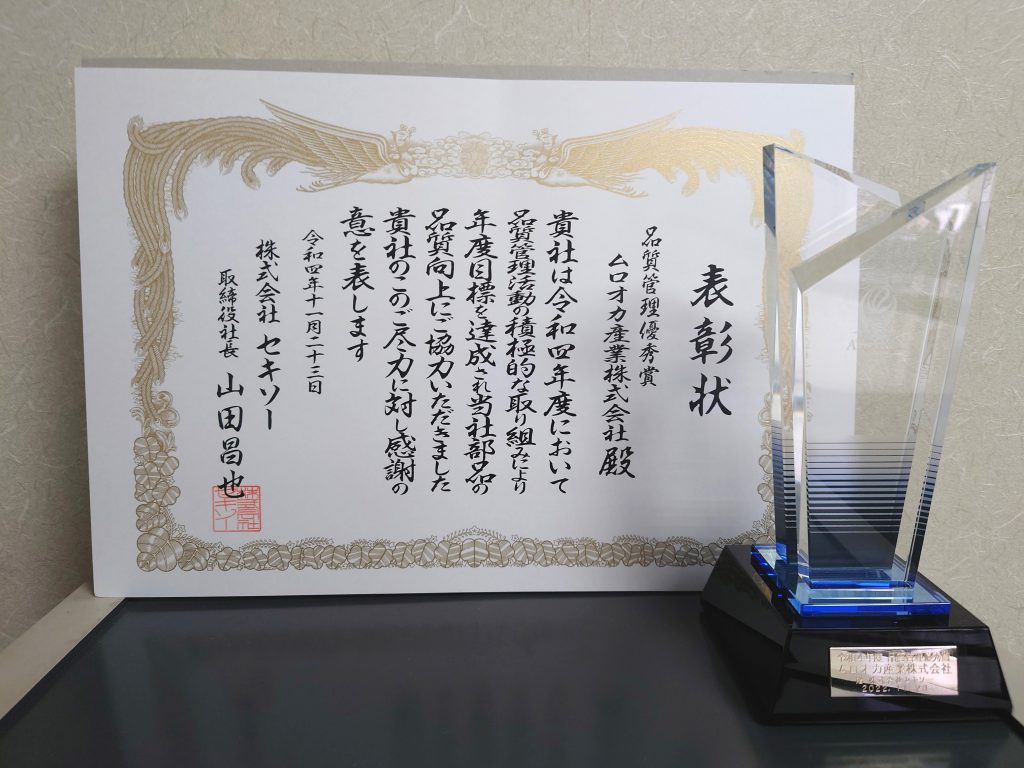 表彰状
品質管理優秀賞
ムロオカ産業株式会社 殿
貴社は令和四年度において
品質管理活動の積極的な取り組みにより
年度目標を達成され当社部品の
品質向上にご協力いただきました
貴社のこのご尽力に対し感謝の
意を表します
令和四年十一月二十三日
株式会社 セキソー
取締役社長 山田昌也
ムロオカ産業株式会社